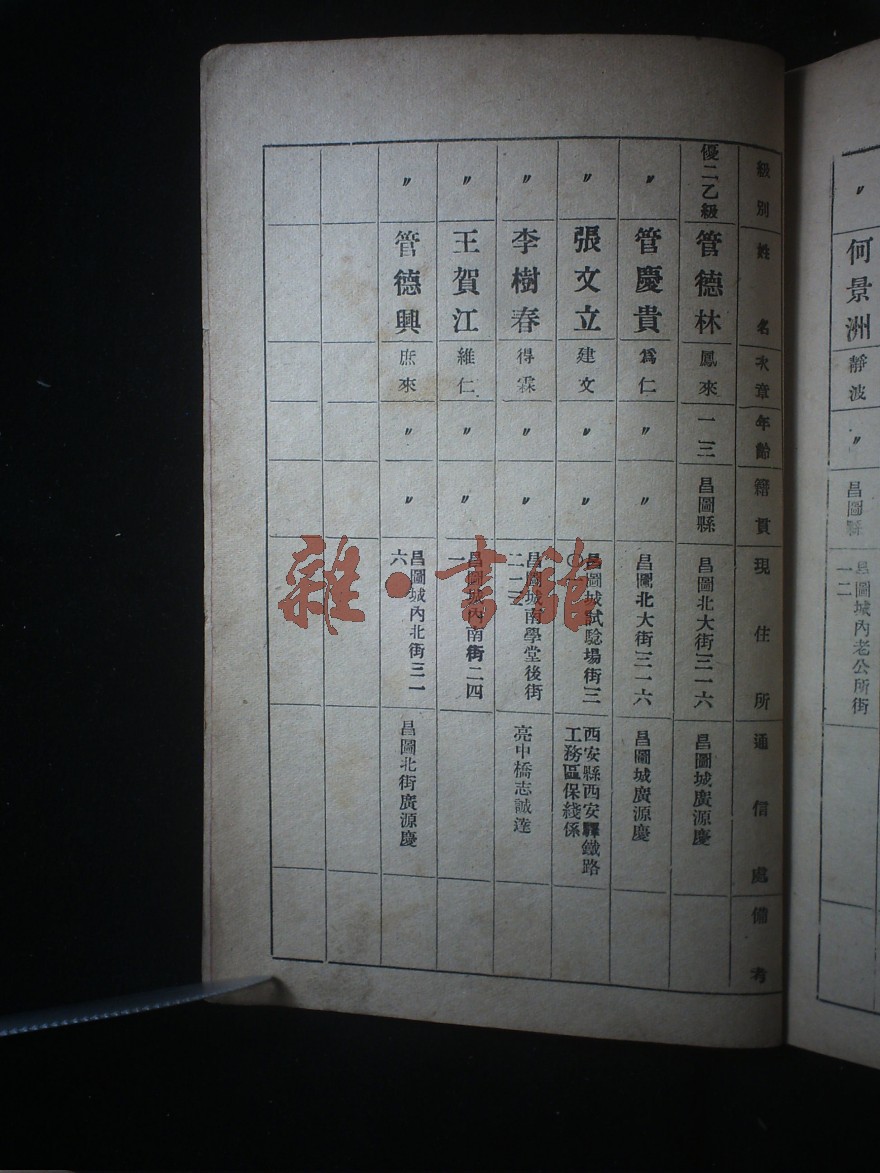 何景洲 靜波 〃 昌圖縣 昌圖城內老公所街一二
級別 姓名 次章 年齡 籍貫 現住所 通信處 備考
優二乙級 管德林 鳳來 一三 昌圖縣 昌圖北大街三一六 昌圖城廣源慶
〃 管慶貴 爲仁 〃 〃 昌圖北大街三一六 昌圖城廣源慶
〃 張文立 建文 〃 〃 昌圖城試驗場街三〇 西安縣西安驛鐵路工務區保綫係
〃 李樹春 得霖 〃 〃 昌圖城南學堂後街二二 亮中橋志誠達
〃 王賀江 維仁 〃 〃 昌圖城內南街二四一
〃 管德興 庶來 〃 〃 昌圖城內北街三一六 昌圖北街廣源慶
雜·書館